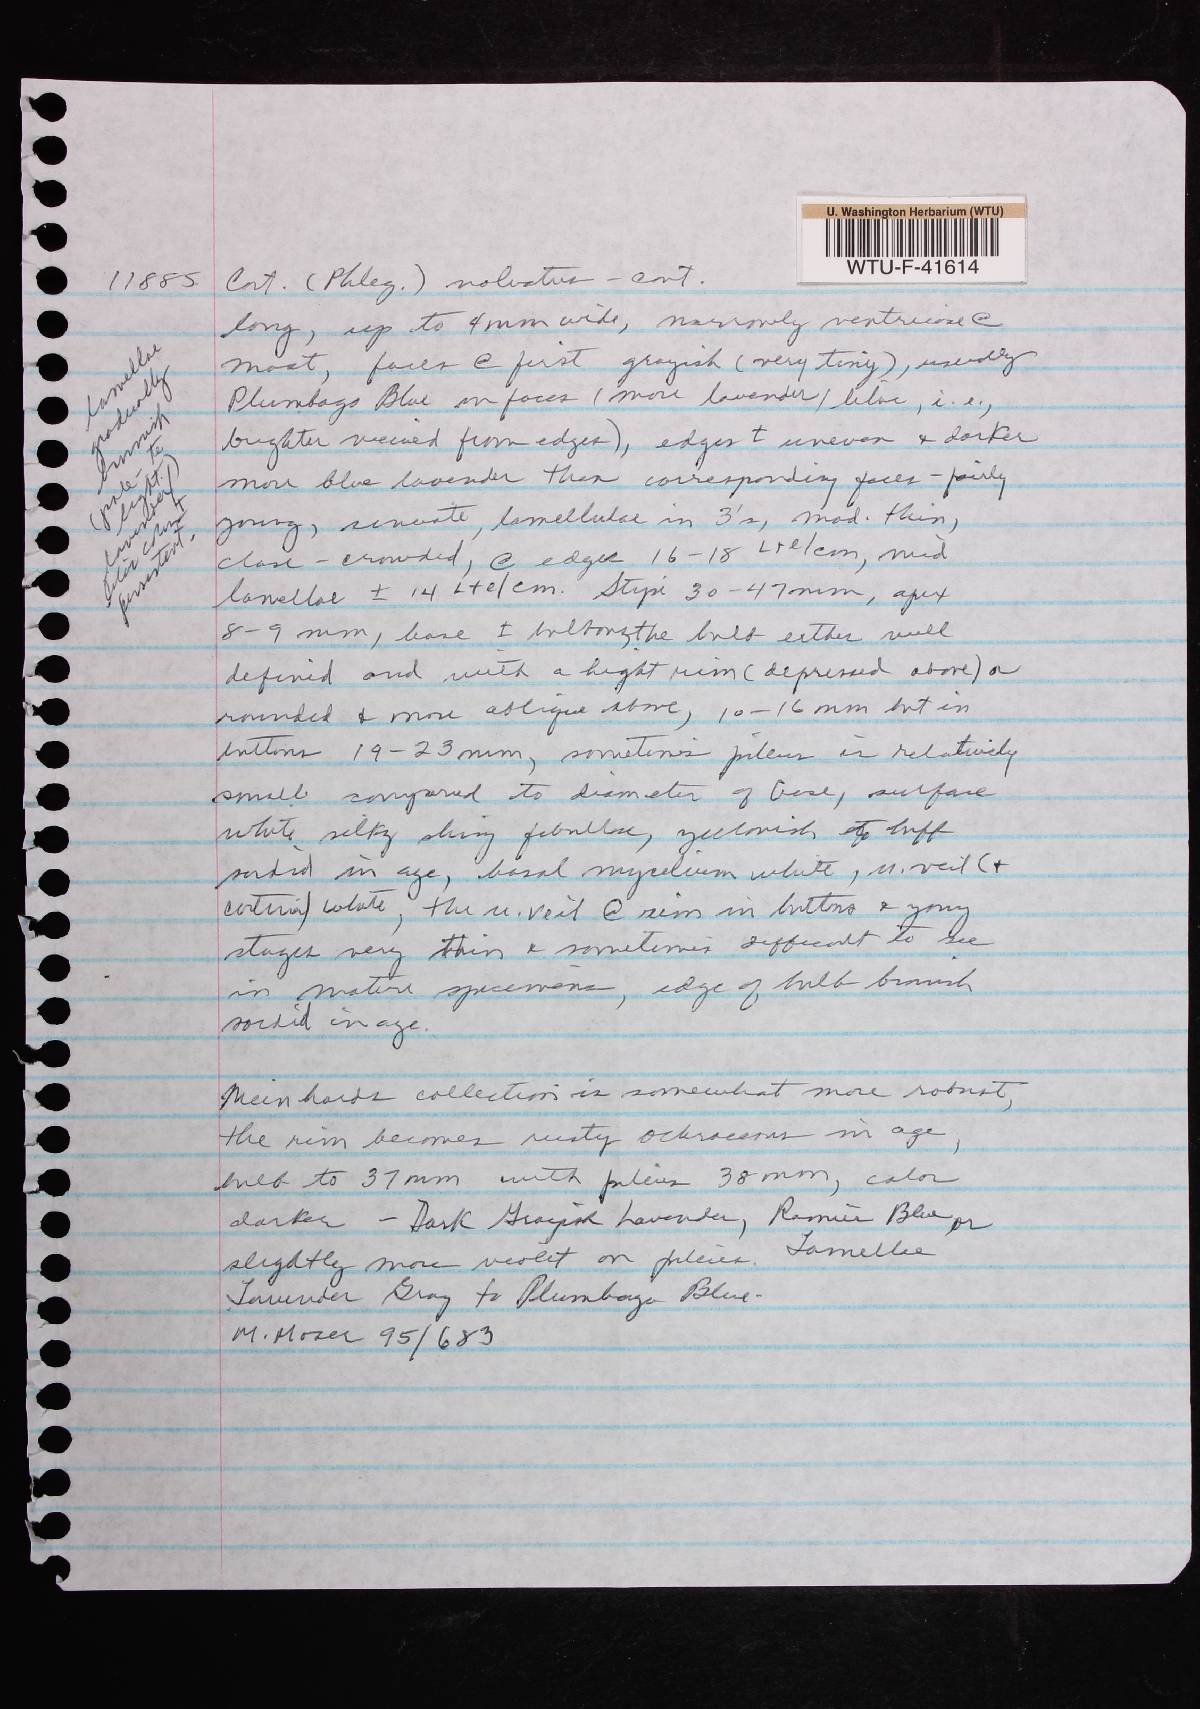 U. Washington Herbarium (WTU)
WTU-F-41614
11885 Cort. (Phleg.) volvatus - cont.
long, up to 4mm wide, narrowly ventricose @
most, faces @ first grayish (very tiny), usually
Plumbago Blue on faces (more lavender/lilac, i.e.,
brighter viewed from edges), edges ± uneven & darker
more blue lavender than corresponding faces - fairly
young, sinuate, lamellulae in 3's, mod. thin,
close - crowded, @ edge 16-18 L+l/cm, mid
lamellae ± 14 L+l/cm. Stipe 30-47mm, apex
8-9 mm, base ± bulbous, the bulb either well
defined and with a slight rim (depressed above) or
rounded & more oblique above, 10-16 mm but in
buttons 19-23mm, sometimes pileus is relatively
small compared to diameter of base, surface
white silky shiny fibrillose, yellowish to buff
sordid in age, basal mycelium white, u. veil (+
cortina) white, the u. veil @ rim in buttons & young
stages very thin & sometimes difficult to see
in mature specimens, edge of bulb brownish
sordid in age.
lamellae
gradually
brownish
(pale to
light
lavender/
lilac
persistent.
Meinhards collection is somewhat more robust,
the rim becomes rusty ochraceous in age,
bulb to 37mm with pileus 38mm, color
darker - Dark Grayish Lavender, Ramier Blue or
slightly more violet on pileus. Lamellae
Lavender Gray to Plumbago Blue.
M. Moser 95/683